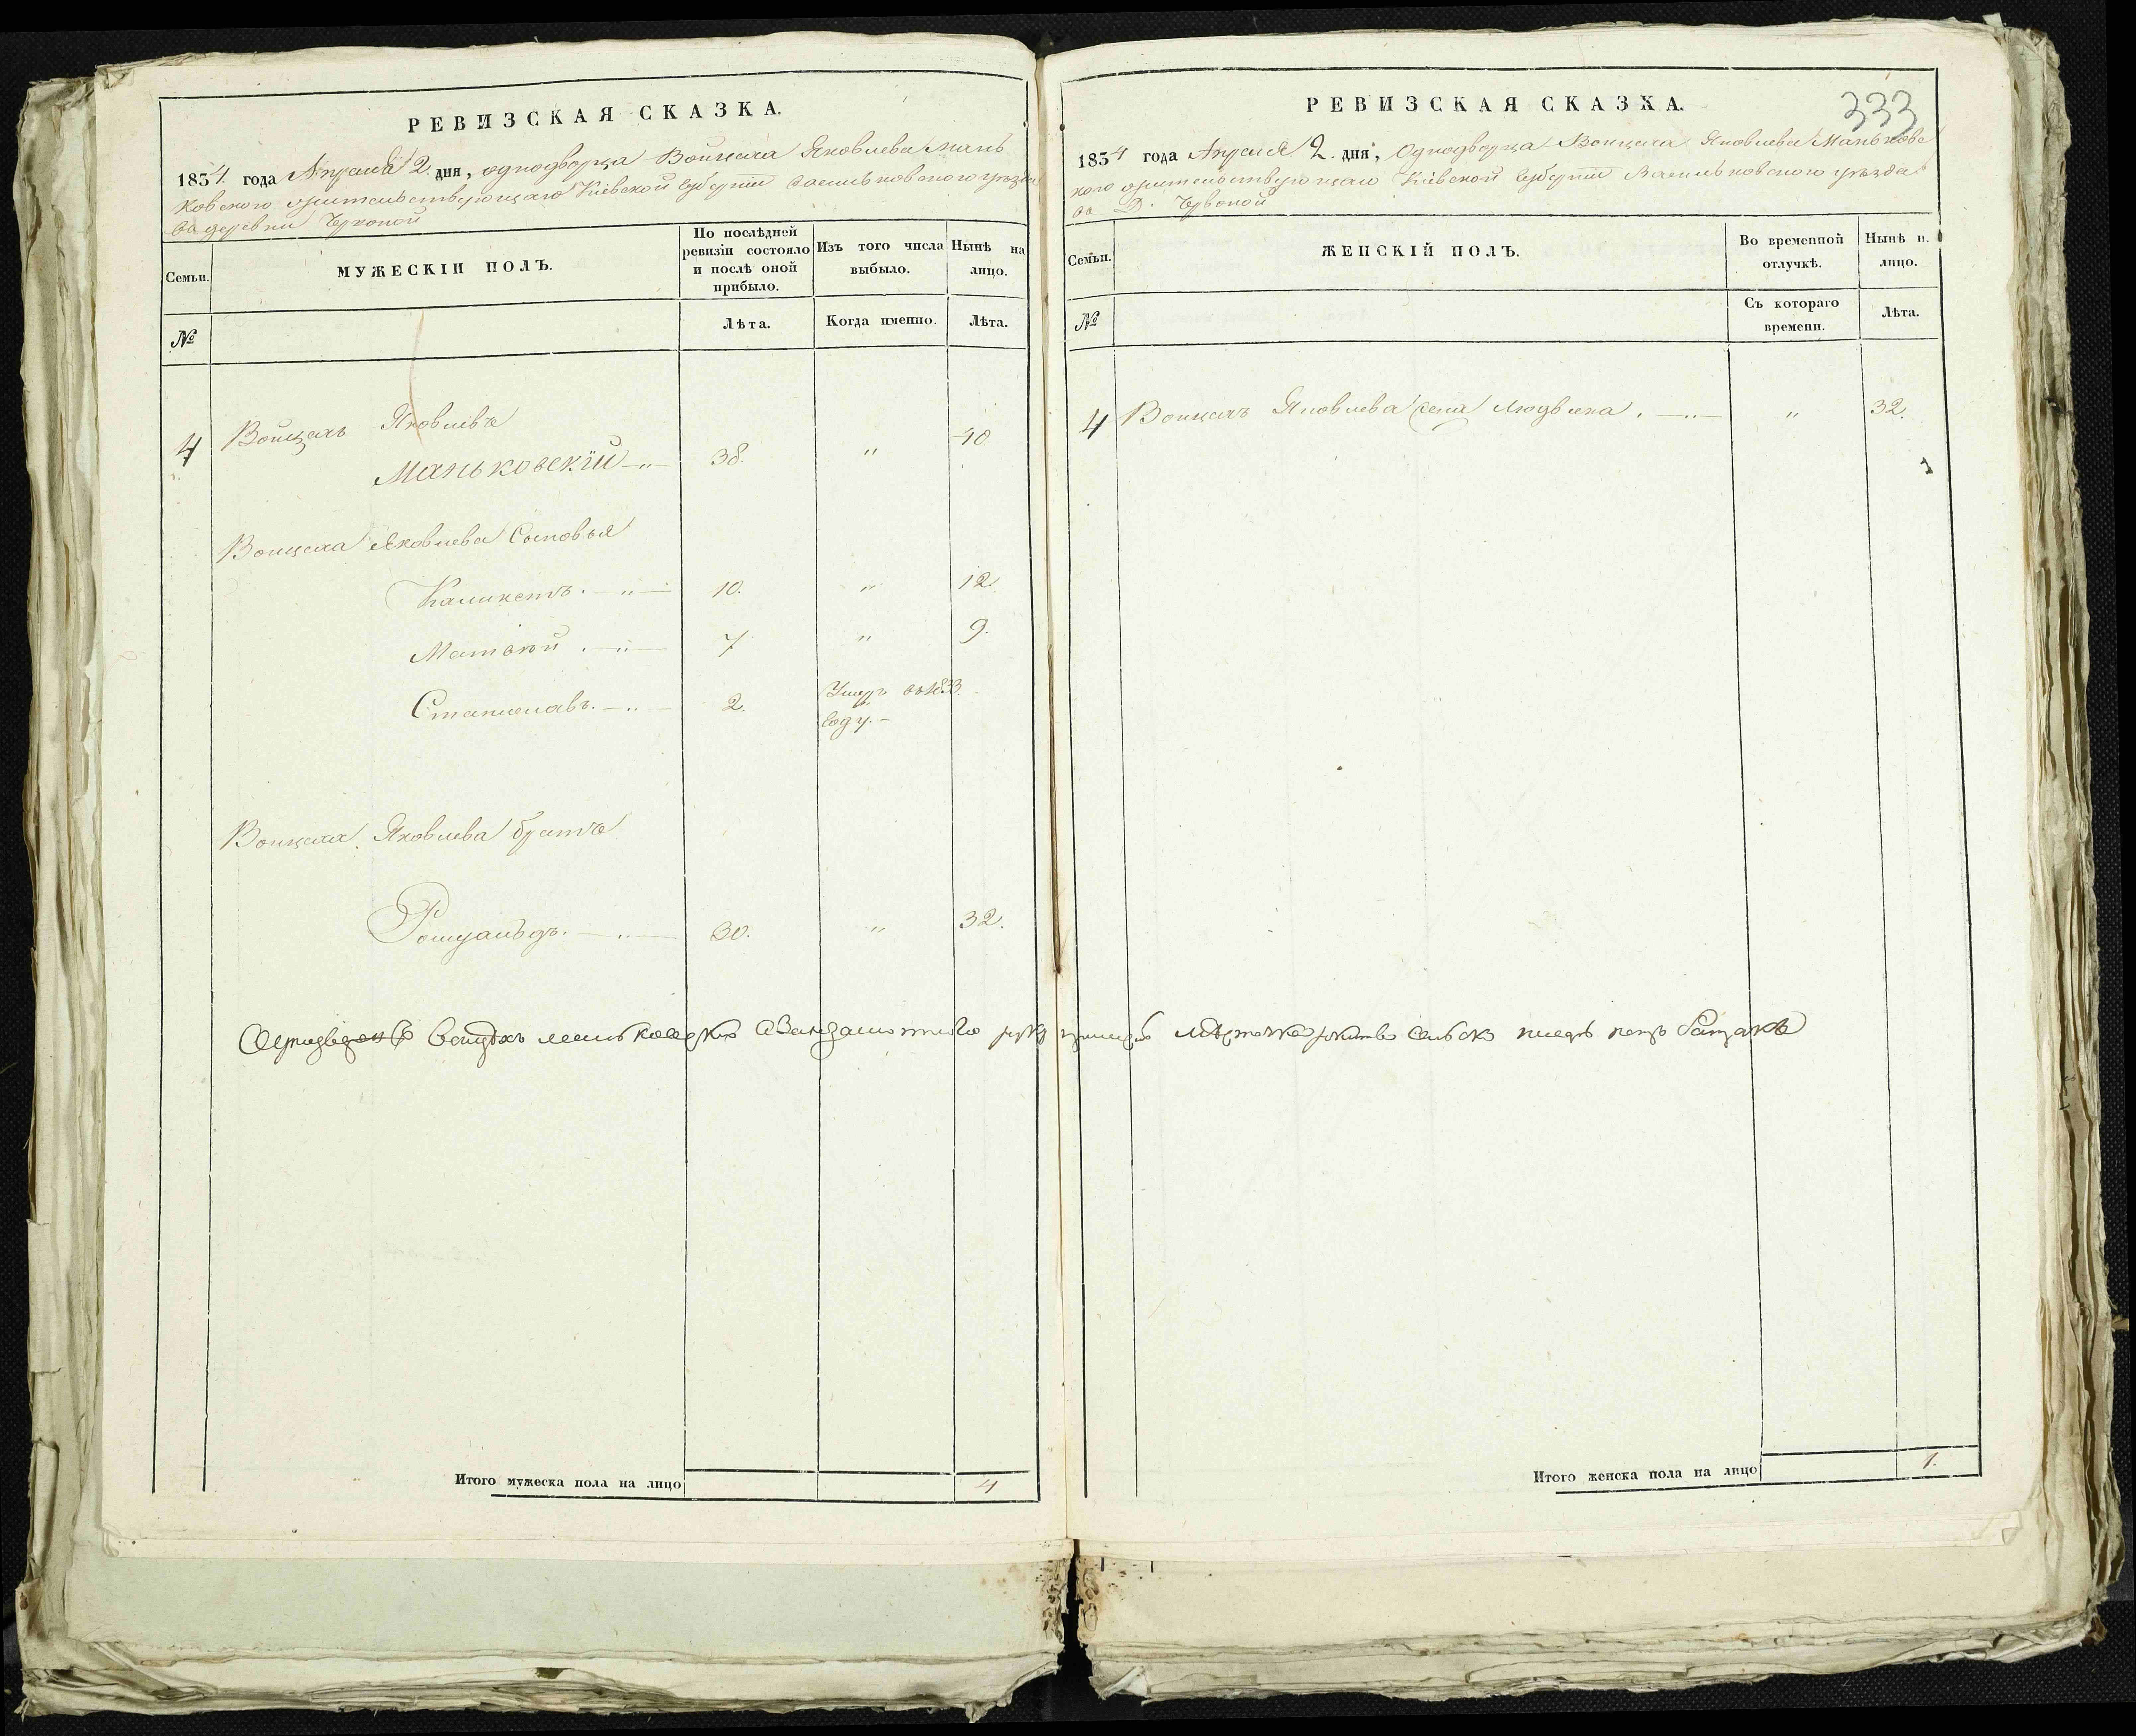 РЕВИЗСКАЯ СКАЗКА.
1834. года Апреля 2. дня, однодворца Войцеха Яковлева Мань
ковского жительствующаго Кіевской Губерніи Васильковского уезда
въ деревни
Семьи.
МУЖЕСКІЙ ПОЛЪ.
По послѣдней ревизіи состояло и послѣ оной прибыло.
Изъ того числа выбыло.
Нынѣ на лицо.
№
Лѣта.
Когда именно.
Лѣта.
4 Войцехъ Яковлевъ
Маньковскій 38. " 40
Войцеха Яковлева Сыновья
Каликстъ. 10. " 12.
Матвѣй 7 " 9.
Станиславъ. 2. Умеръ въ 1833.
году.
Войцеха Яковлева братъ
Ромуальдъ. 30. " 32.
Итого мужеска пола на лицо 4
РЕВИЗСКАЯ СКАЗКА.
333
1834 года Апреля 2. дня, Однодворца Войцеха Яковлева Маньковс
кого жительствующаго Кіевской Губерніи Васильковского уѣзда
въ Д. Червоной
Семьи.
ЖЕНСКІЙ ПОЛЪ.
Во временной отлучкѣ.
Нынѣ н. лицо.
№
Съ котораго времени.
Лѣта.
4 Войцехъ Яковлева жена Людвика. " 32.
1
Итого женска пола на лицо 1.